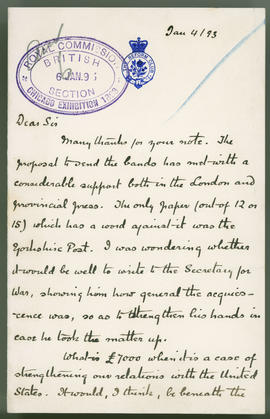 Jan 4/93
ROYAL COMMISSION
BRITISH
6 JAN. 93
SECTION
CHICAGO EXHIBITION 1893
Dear Sir
Many thanks for your note. The
proposal to send the bands has met with a
considerable support both in the London and
provincial press. The only paper (out of 12 or
15) which has a word against it was the
Yorkshire Post. I was wondering whether
it would be well to write to the Secretary for
War, showing him how general the acquies-
cence was, so as to strengthen his hands in
case he took the matter up.
What is £7000 when it is a case of
strengthening our relations with the United
States. It would, I think, be beneath the